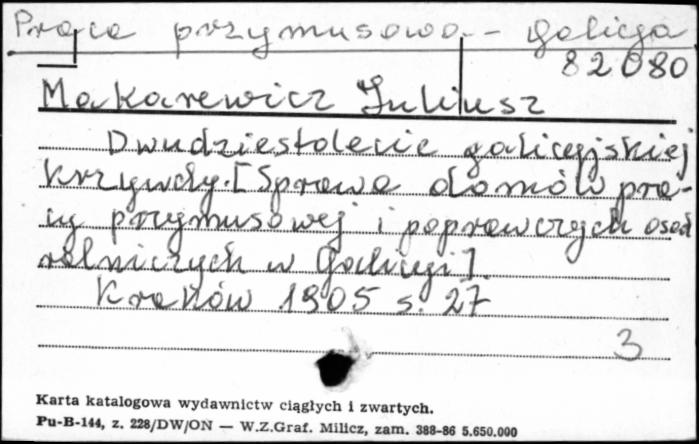 Praca przymusowa - Galicja
82080
Makarewicz Juliusz
Dwudziestolecie galicyjskiej
krzywdy. [Sprawa domów pra-
cy przymusowej i poprawczych osad
rolniczych w Galicyi].
Kraków 1905 s. 27
3
Karta katalogowa wydawnictw ciągłych i zwartych.
Pu-B-144, z. 228/DW/ON — W.Z.Graf. Milicz, zam. 388-86 5.650.000